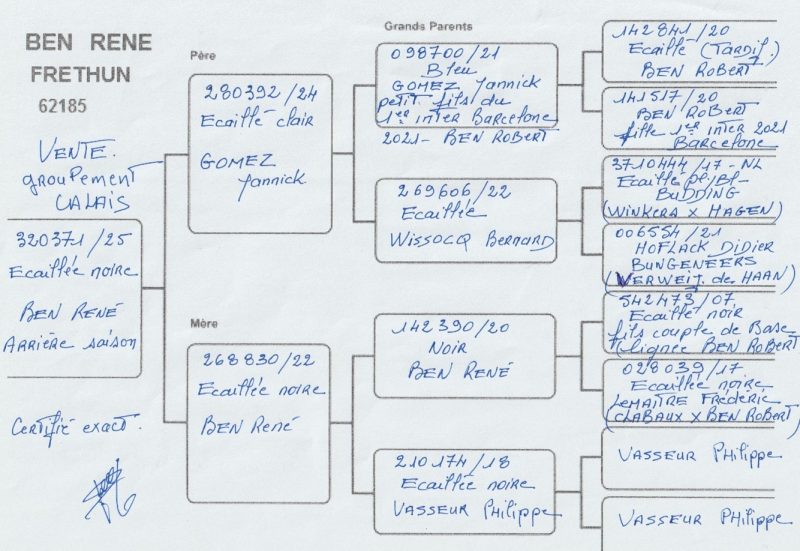 BEN RENE
FRETHUN
62185
VENTE.
groupement
CALAIS
320371/25
Ecaillée noire
BEN RENÉ
ARRIÈRE saison
Certifié exact.
Père
280392/24
Ecaillé clair
GOMEZ
Yannick
Mère
268830/22
Ecaillée noire
BEN René
Grands Parents
098700/21
Bleu
GOMEZ Yannick
petit fils du
1er inter Barcelone
2021- BEN ROBERT
269606/22
Ecaillée
WISSOCQ BERNARD
142390/20
NOIR
BEN RENÉ
210174/18
Ecaillée noire
VASSEUR PHilippe
142841/20
Ecaillé (TARDif.)
BEN ROBERT
141517/20
BEN ROBERT
fille 1er inter 2021
Barcelone
3710444/17-NL
Ecaillé
BUDDING
(WINKERS X HAGEN)
006554/21
HOFLACK DIDIER
BUNGENEERS
(VERWEIJ. de HAAN)
542473/07
Ecaillé noir
fils couple de Base
(lignée BEN ROBERT
028039/17
Ecaillée noire
LEMAITRE FRÉDÉRIC
(CLABAUX X BEN ROBERT)
VASSEUR PHilippe
VASSEUR PHilippe